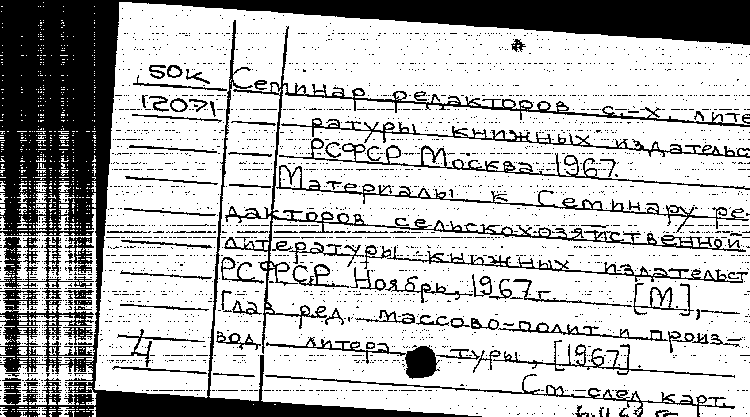 50к Семинар редакторов с.-х. лите
12071
ратуры книжных издательс
РСФСР. Москва. 1967.
Материалы к Семинару ре-
дакторов сельскохозяйственной
литературы книжных издательст
РСФСР. Ноябрь, 1967г. [М],
Глав ред. массово-полит. и произ-
вод. литературы, [1967].
4
См. след. карт.